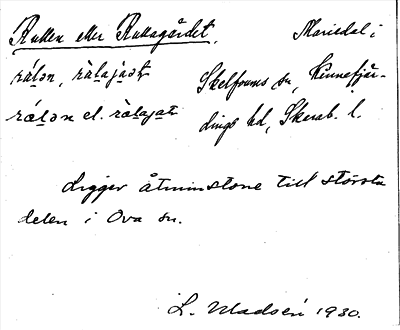 Rullen eller Rullagårdet. Mariedal i
rálən, ràlajaət Skelfvums sn, Kinnefjär-
rálən el. ràlajat dings hd, Skarab. l.
Ligger åtminstone till största
delen i Ova sn.
L. Madsén 1930.